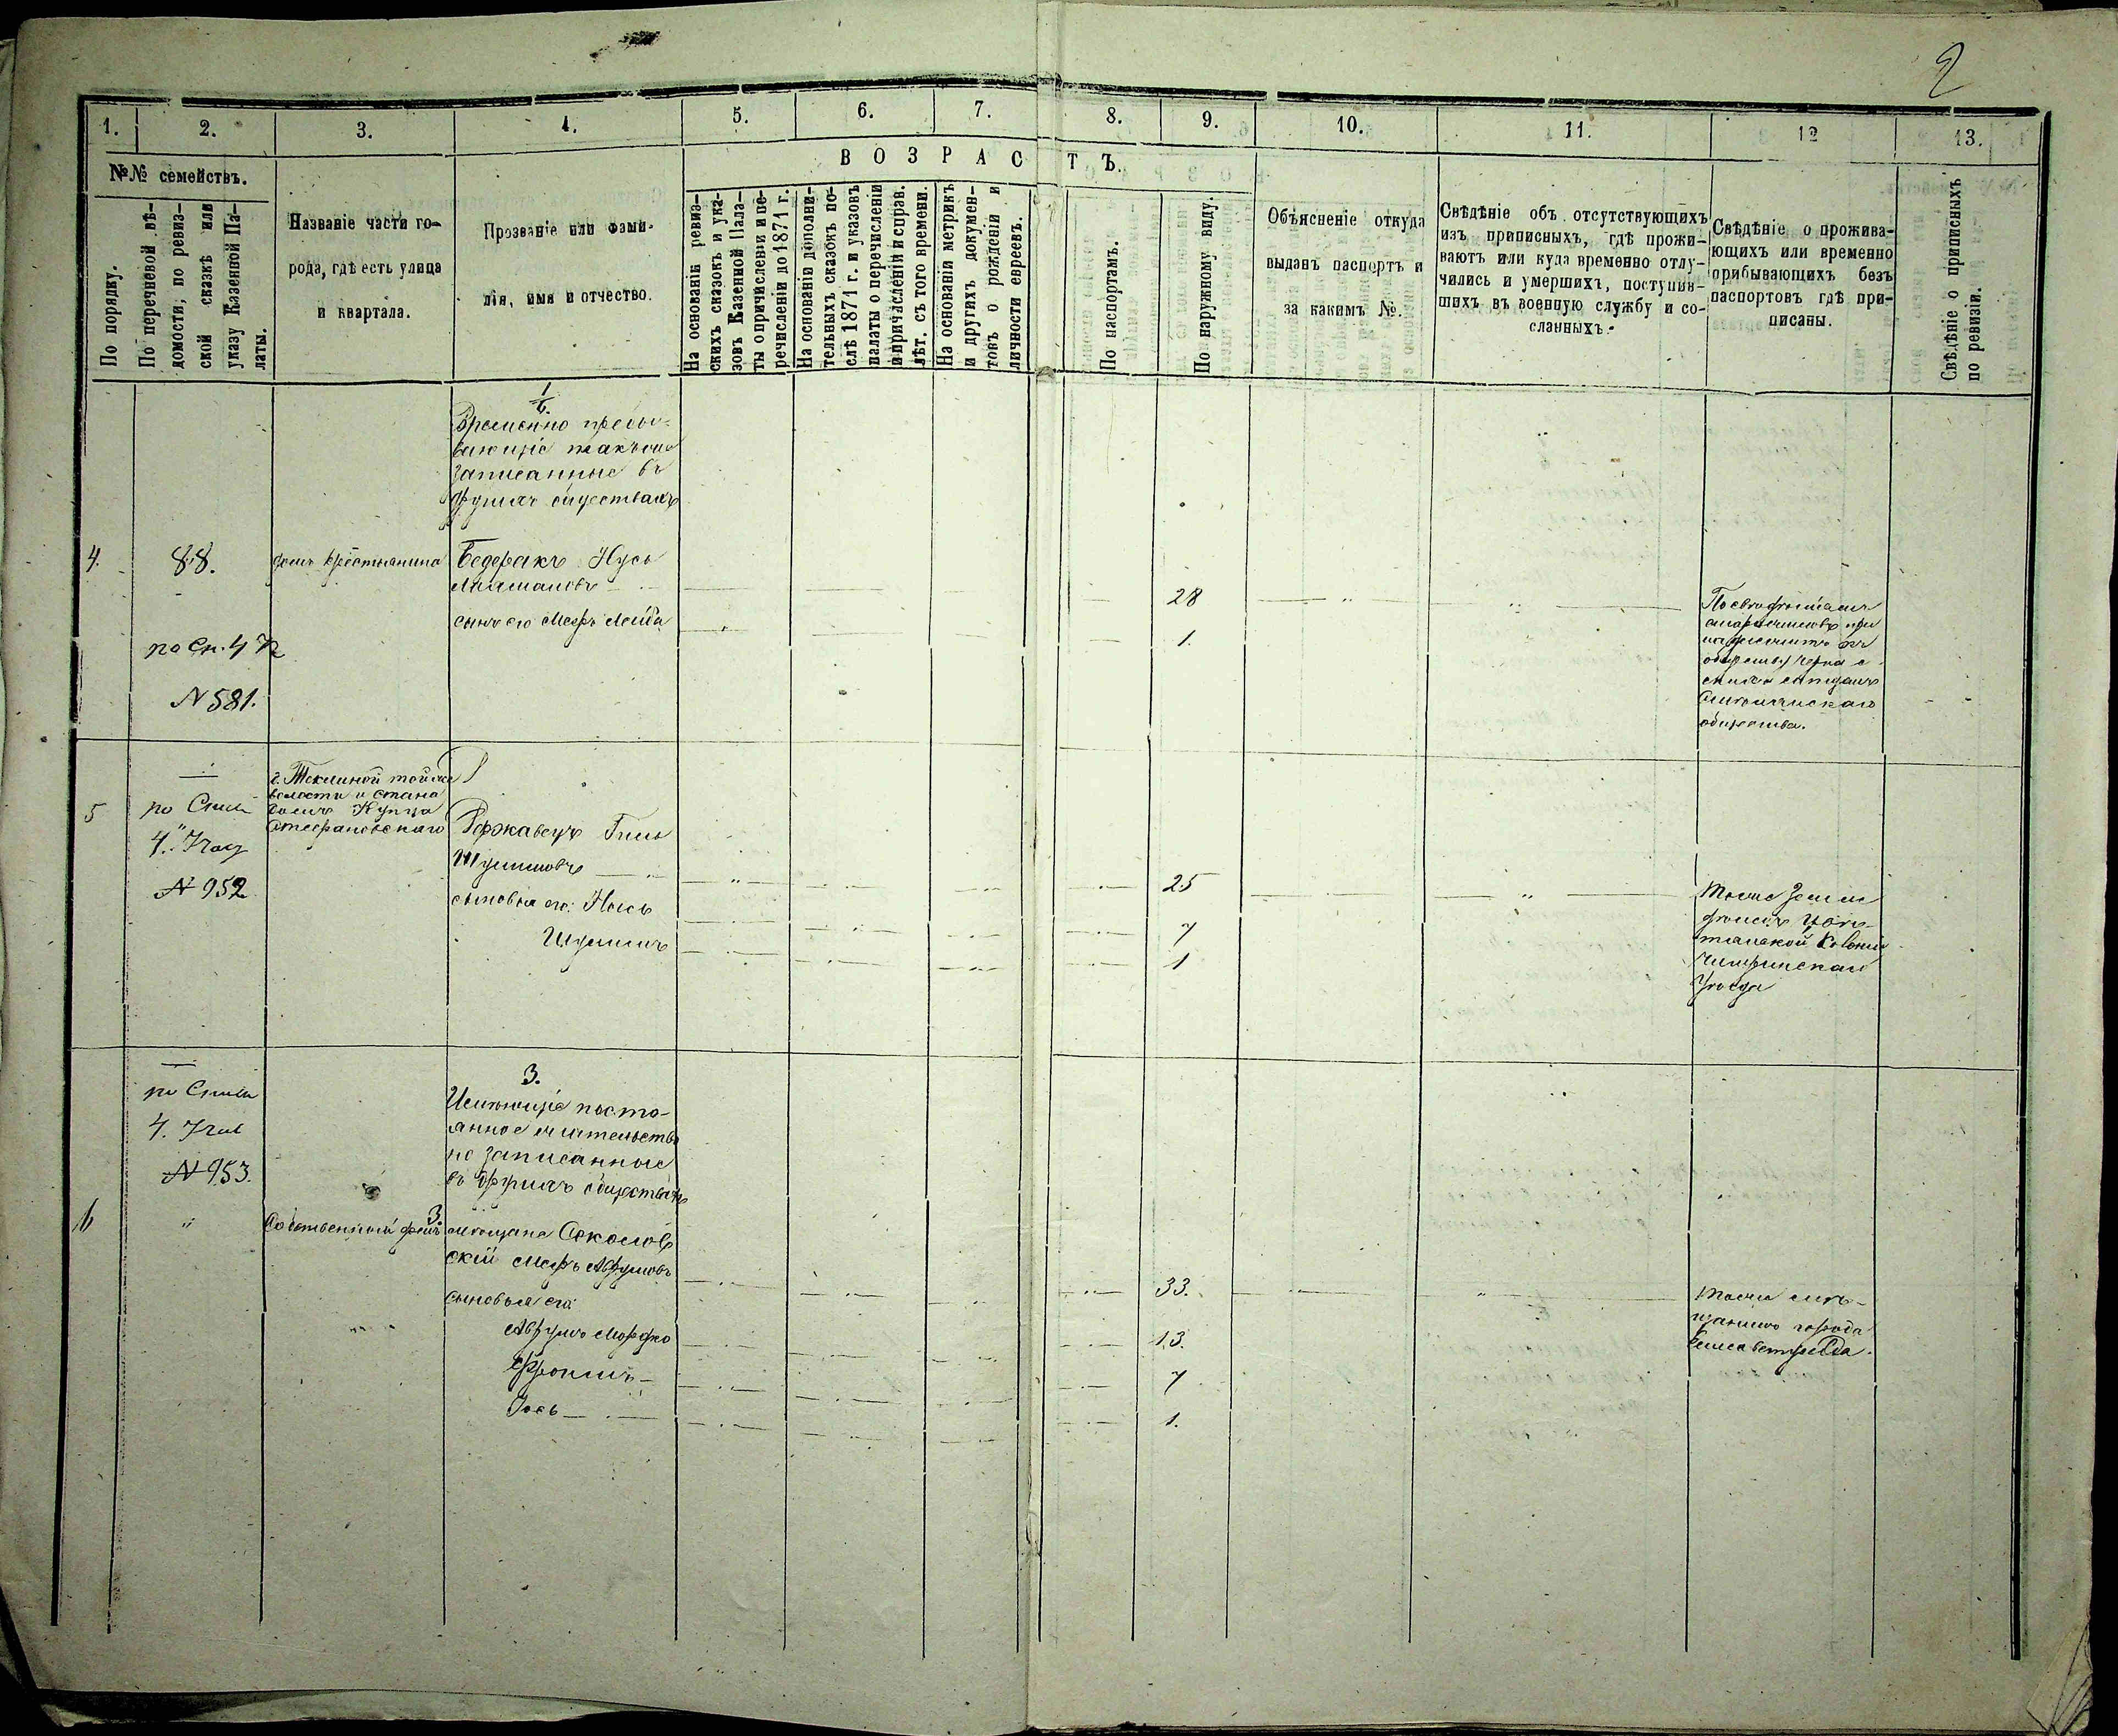 2
1. 2. 3. 4. 5. 6. 7. 8. 9. 10. 11. 12 13.
№№ семействъ.
ВОЗРАСТЪ.
По порядку.
По перечневой вѣ-
домости, по ревиз-
ской сказкѣ или
указу Казенной Па-
латы.
Названіе части го-
рода, гдѣ есть улица
и квартала.
Прозваніе или фами-
лія, имя и отчество.
На основаніи ревиз-
скихъ сказокъ и ука-
зовъ Казенной Пала-
ты о причисленіи и пе-
речисленіи до 1871 г.
На основаніи дополни-
тельныхъ сказокъ по-
слѣ 1871 г. и указовъ
палаты о перечисленіи
и причисленіи и справ.
лѣт. съ того времени.
На основаніи метрикъ
и другихъ докумен-
товъ о рожденіи и
личности евреевъ.
По паспортамъ.
По наружному виду.
Объясненіе откуда
выданъ паспортъ и
за какимъ №.
Свѣдѣніе объ отсутствующихъ
изъ приписныхъ, гдѣ прожи-
ваютъ или куда временно отлу-
чились и умершихъ, поступив-
шихъ въ военную службу и со-
сланныхъ.
Свѣдѣніе о прожива-
ющихъ или временно
прибывающихъ безъ
паспортовъ гдѣ при-
писаны.
Свѣдѣніе о приписныхъ
по ревизіи.
Временно пребы-
вающіе
записанные въ
другихъ обществахъ
4. 88. домъ крестьянина
Бедеракъ Нусь
28
сынъ его Меръ Лейба
1.
по Сп. 4
N 581.
общества.
г. Теклиной той же
волости и стана
домъ Купца
Стефановскаго
5 по Спис
4.
N 952
Державецъ Гиль
Шулимовъ
25
сыновья его: Иось 7
Шулимъ 1
Тоже
колоніи
Чигиринскаго
уезда
по Спис
4.
N 953.
3.
Имеющіе посто-
янное жительство
но записанные
въ другихъ обществахъ
6 " Собственный домъ
3.
мещане Соколов
скій Меръ Аврумовъ
33.
сыновья его:
Аврумъ Мордко 13.
Фроимъ 7
Іось 1.
Тоже мѣ-
щанинъ города
Елисаветграда.